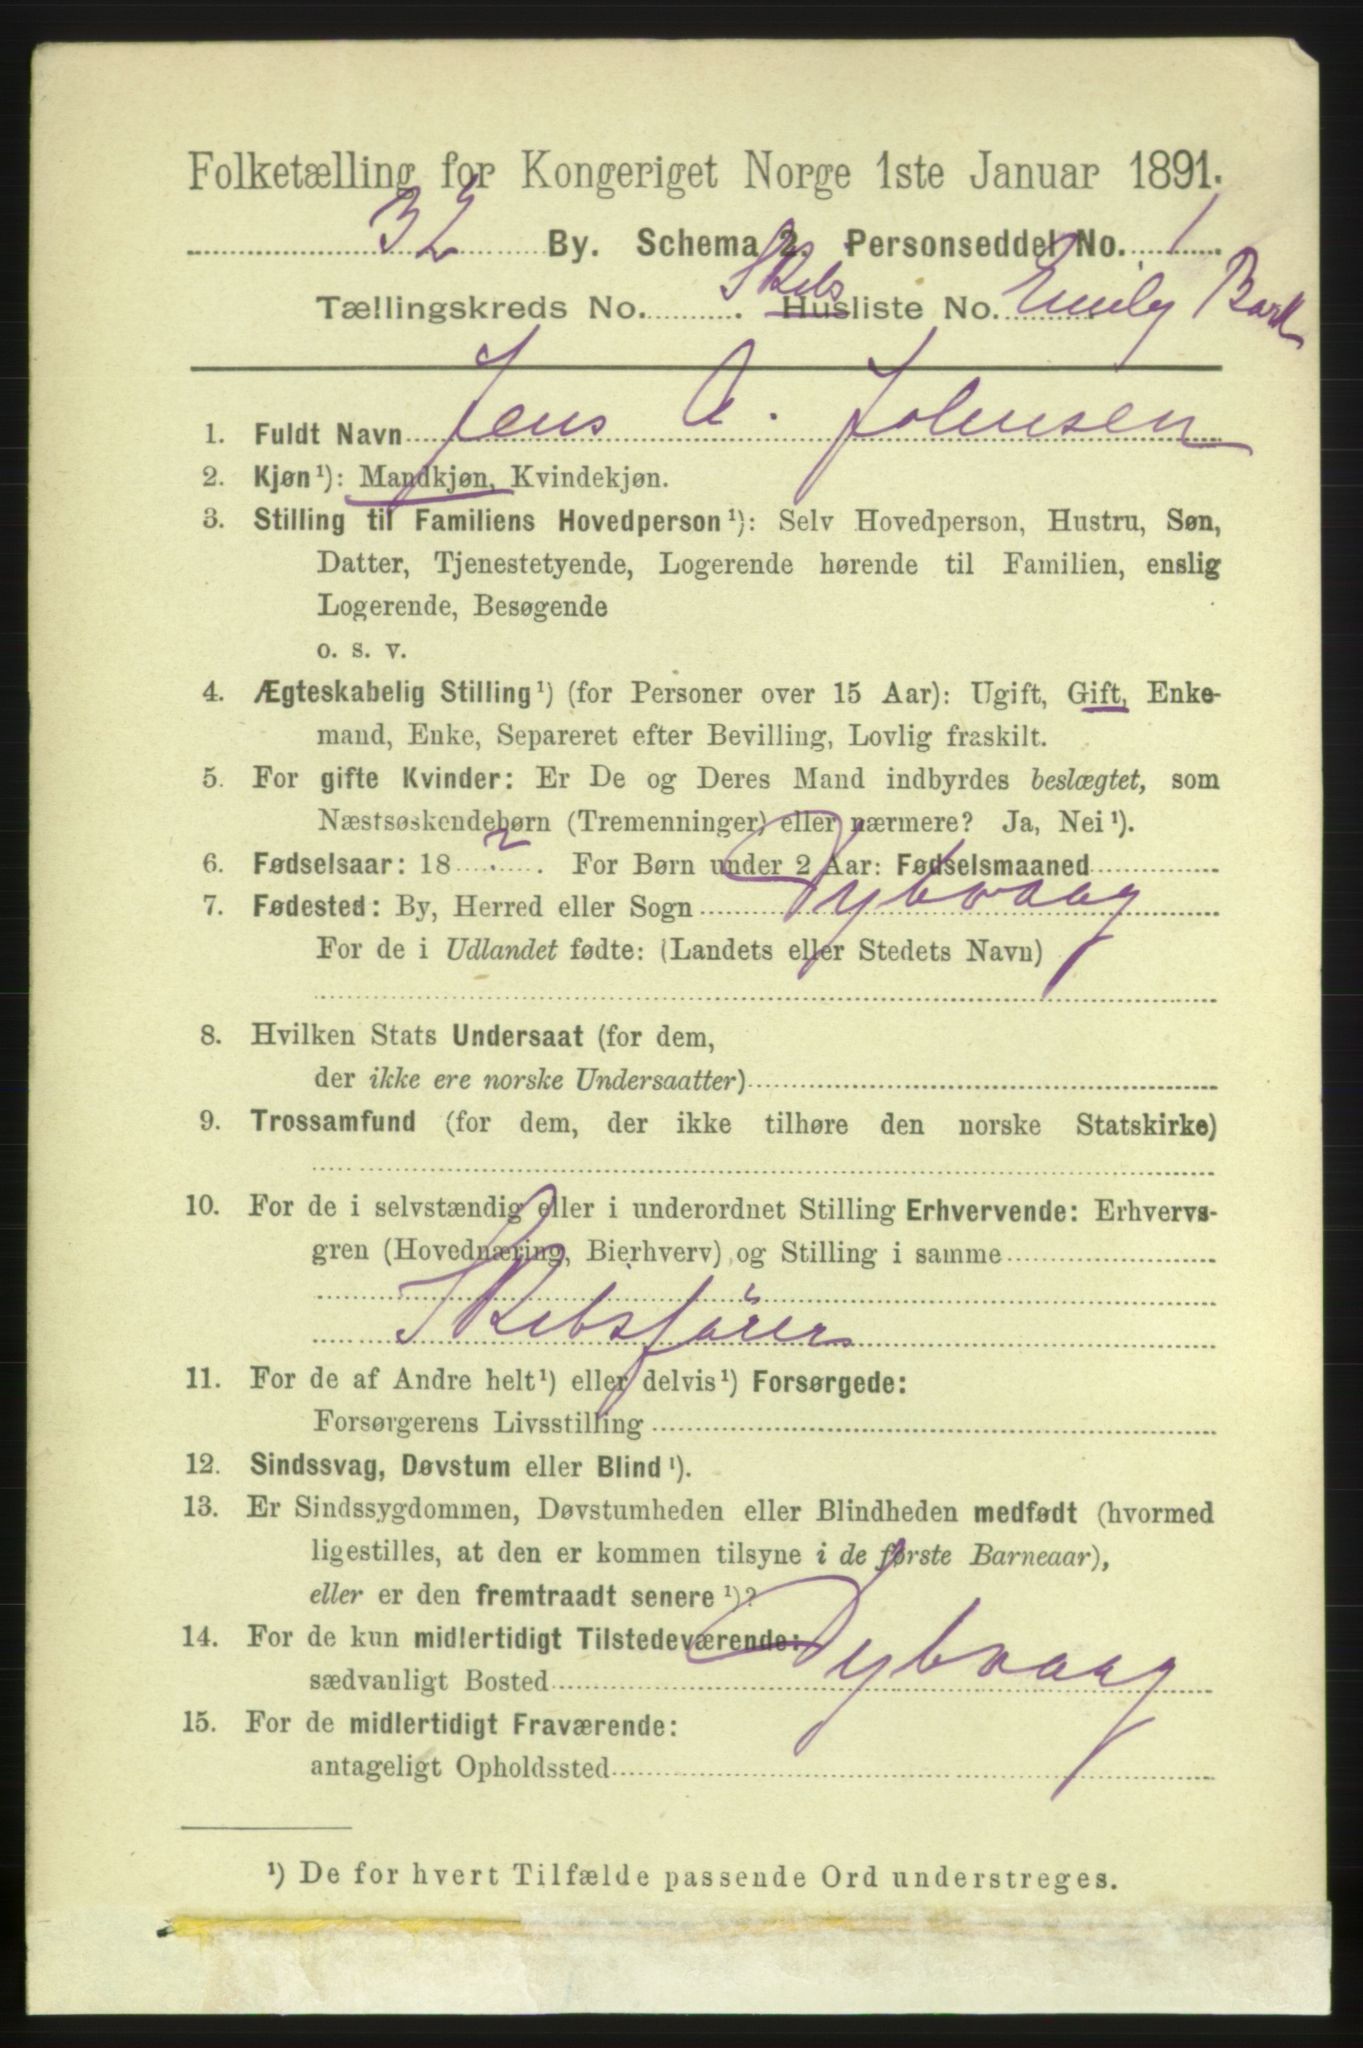 Folketælling for Kongeriget Norge 1ste Januar 1891.
32 By. Schema 2. Personseddel No. 1
Tællingskreds No. . Skibs Husliste No. Emily Bark
1. Fuldt Navn Jens A. Johnsen
2. Kjøn¹): Mandkjøn, Kvindekjøn.
3. Stilling til Familiens Hovedperson¹): Selv Hovedperson, Hustru, Søn,
Datter, Tjenestetyende, Logerende hørende til Familien, enslig
Logerende, Besøgende
o. s. v.
4. Ægteskabelig Stilling¹) (for Personer over 15 Aar): Ugift, Gift, Enke-
mand, Enke, Separeret efter Bevilling, Lovlig fraskilt.
5. For gifte Kvinder: Er De og Deres Mand indbyrdes beslægtet, som
Næstsøskendebørn (Tremenninger) eller nærmere? Ja, Nei¹).
6. Fødselsaar: 18 ? . For Børn under 2 Aar: Fødselsmaaned
7. Fødested: By, Herred eller Sogn Dybvaag
For de i Udlandet fødte: (Landets eller Stedets Navn)
8. Hvilken Stats Undersaat (for dem,
der ikke ere norske Undersaatter)
9. Trossamfund (for dem, der ikke tilhøre den norske Statskirke)
10. For de i selvstændig eller i underordnet Stilling Erhvervende: Erhvervs-
gren (Hovednæring, Bierhverv) og Stilling i samme
Skibsförer
11. For de af Andre helt¹) eller delvis¹) Forsørgede:
Forsørgerens Livsstilling
12. Sindssvag, Døvstum eller Blind¹).
13. Er Sindssygdommen, Døvstumheden eller Blindheden medfødt (hvormed
ligestilles, at den er kommen tilsyne i de første Barneaar),
eller er den fremtraadt senere¹)?
14. For de kun midlertidigt Tilstedeværende:
sædvanligt Bosted Dybvaag
15. For de midlertidigt Fraværende:
antageligt Opholdssted
¹) De for hvert Tilfælde passende Ord understreges.